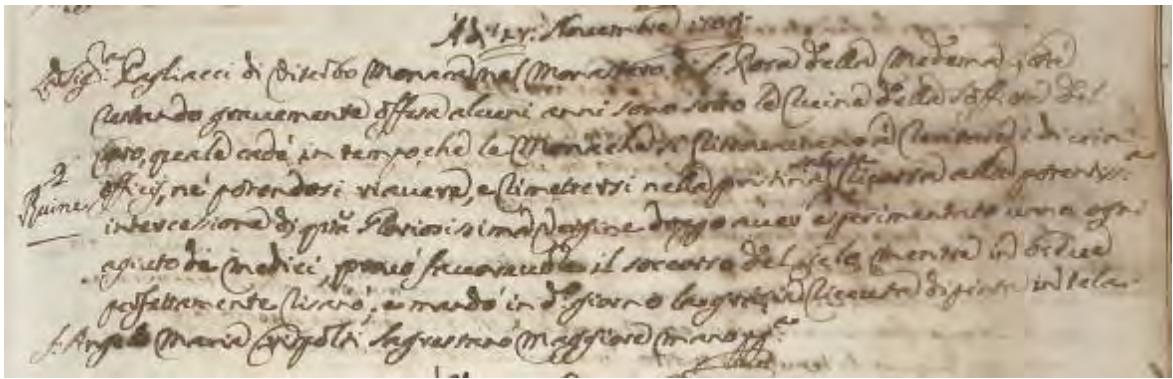 Novembre
La Sig.ra Pagliacci di Viterbo Monaca nel Monastero di S. Rosa della Medema
restando gravemente offesa alcuni anni sono sotto le Ruine della soffitta del
quale cadé in tempo, che le Monache si ritrovavano a
2
officij, né potendosi riavere, e rimettersi nella pristina salute ricorsa alla potentiss.a
Ruine
intercessione di q.sta Gloriosissima Vergine doppo aver esperimentato ogni
agiuto de Medici, provò favorevole il soccorso del Cielo, mentre in breve
perfettamente risanò, e mandò in d.o giorno la grazia ricevuta dipinta in tela
F. Angelo Maria Sagrestano Maggiore mano pp.a